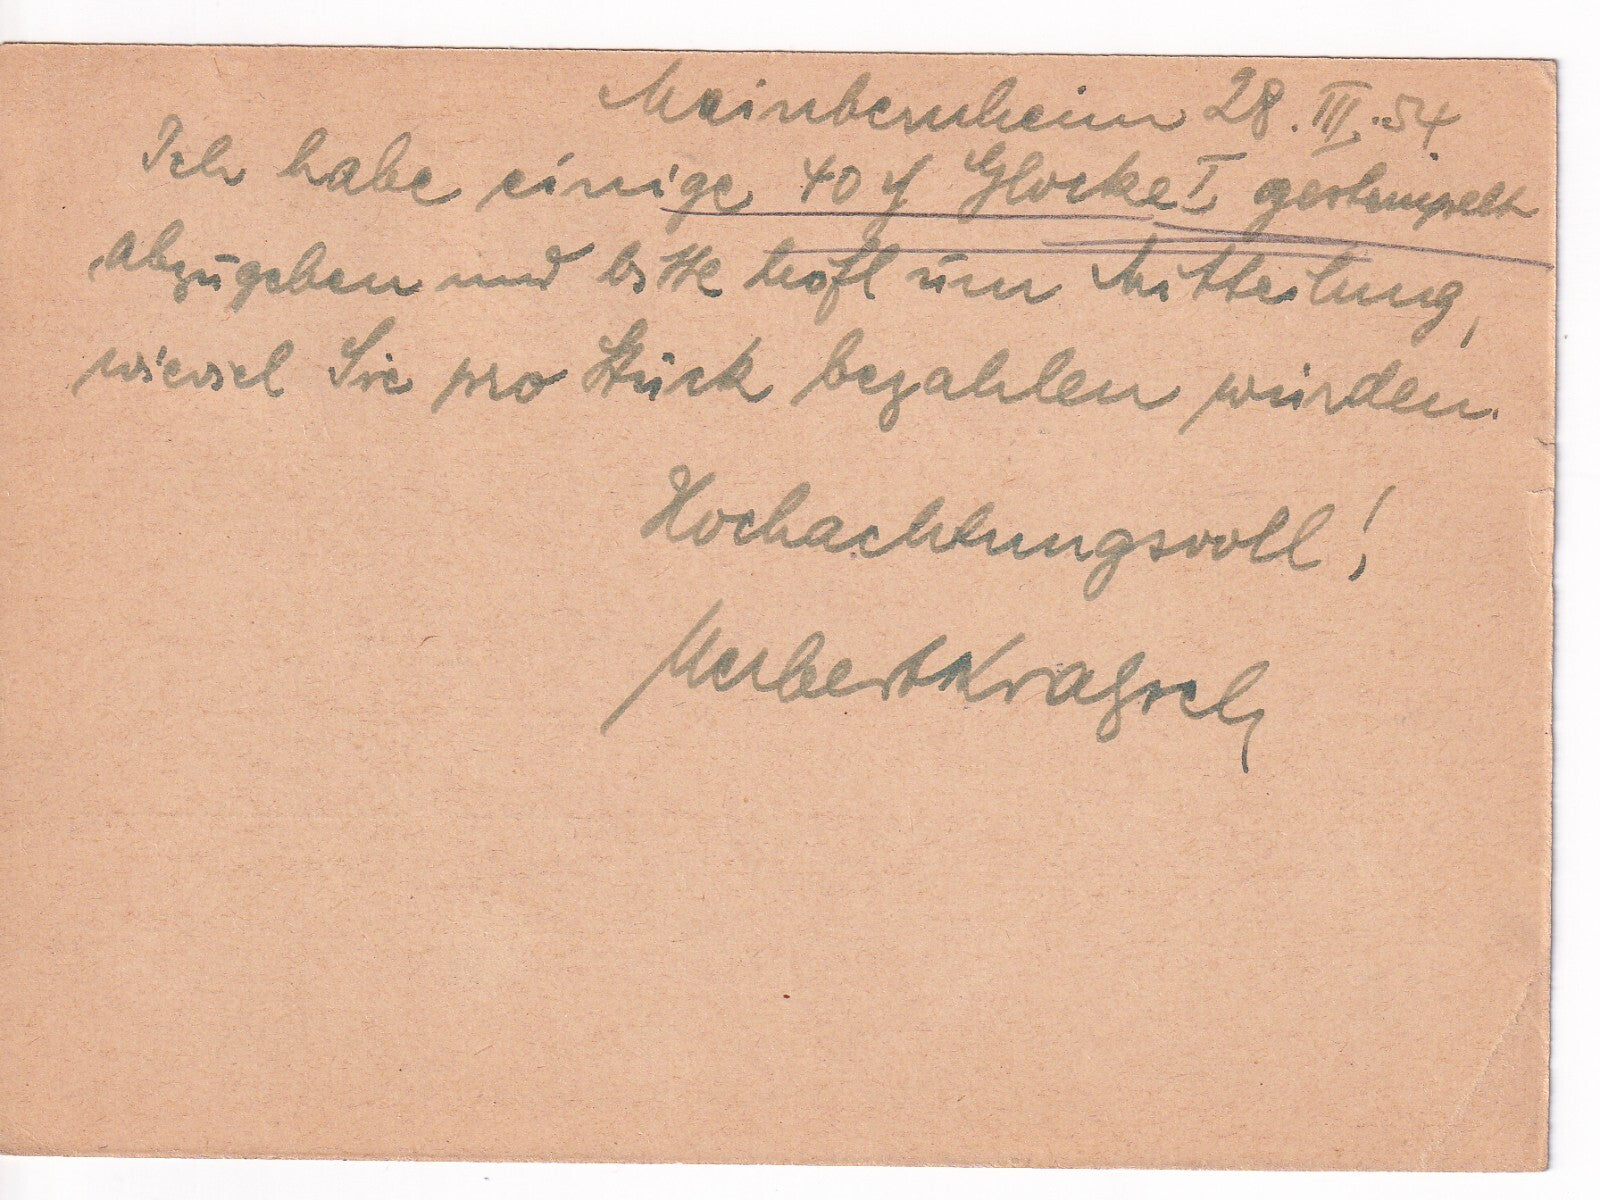 Mainbernheim 28. III. 54
Ich habe einige 40 ₰ Glocke I gestempelt
abzugeben und bitte höfl um Mitteilung,
wieviel Sie pro Stück bezahlen würden.
Hochachtungsvoll!
Herbert